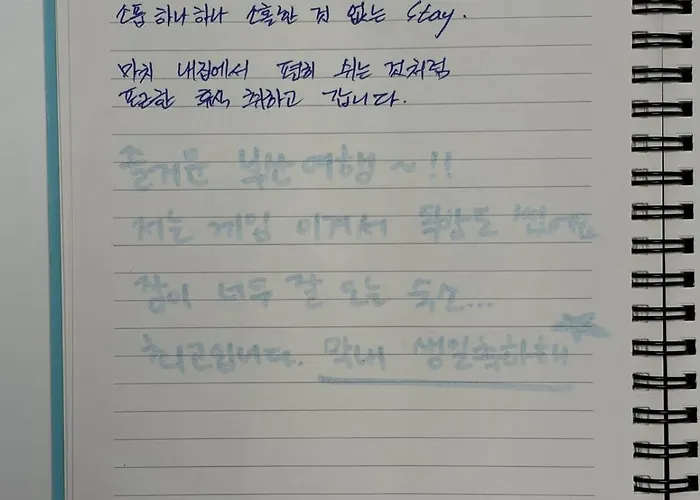 소품 하나하나 소홀한 것 없는 Stay.
마치 내집에서 편히 쉬는 것처럼
포근한 휴식 취하고 갑니다.
즐거운 부산여행~!!
저는 게임 이겨서 독방도 썼어요
잠이 너무 잘 오는 숙소...
최고입니다. 막내 생일축하해!!